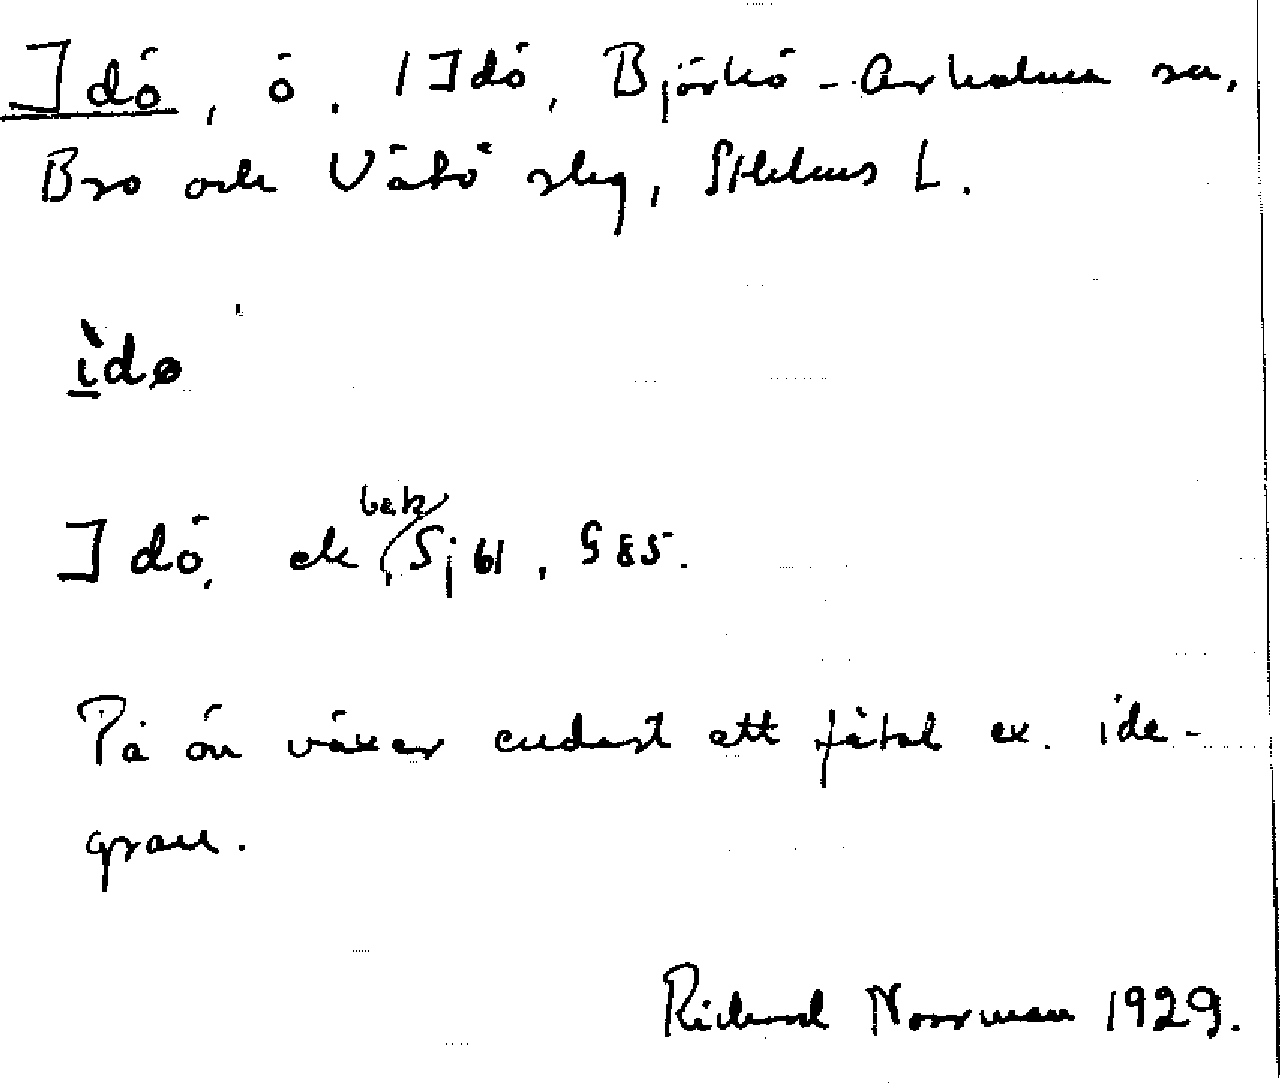 Idö, ö. / Idö, Björkö-Arholma sn,
Bro och Vätö skg, Sthlms L.
ìdø
Idö, ek bek, Sj 61, S 85.
På ön växer endast ett fåtal ex. ide-
gran.
Richard Norrman 1929.